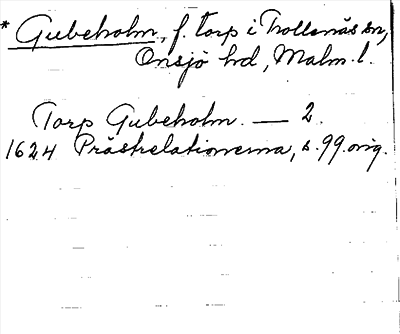 * Gubeholm, f. torp i Trollenäs sn,
Onsjö hd, Malm. l.
Torp Gubeholm. — 2.
1624 Prästrelationerna, s. 99. orig.